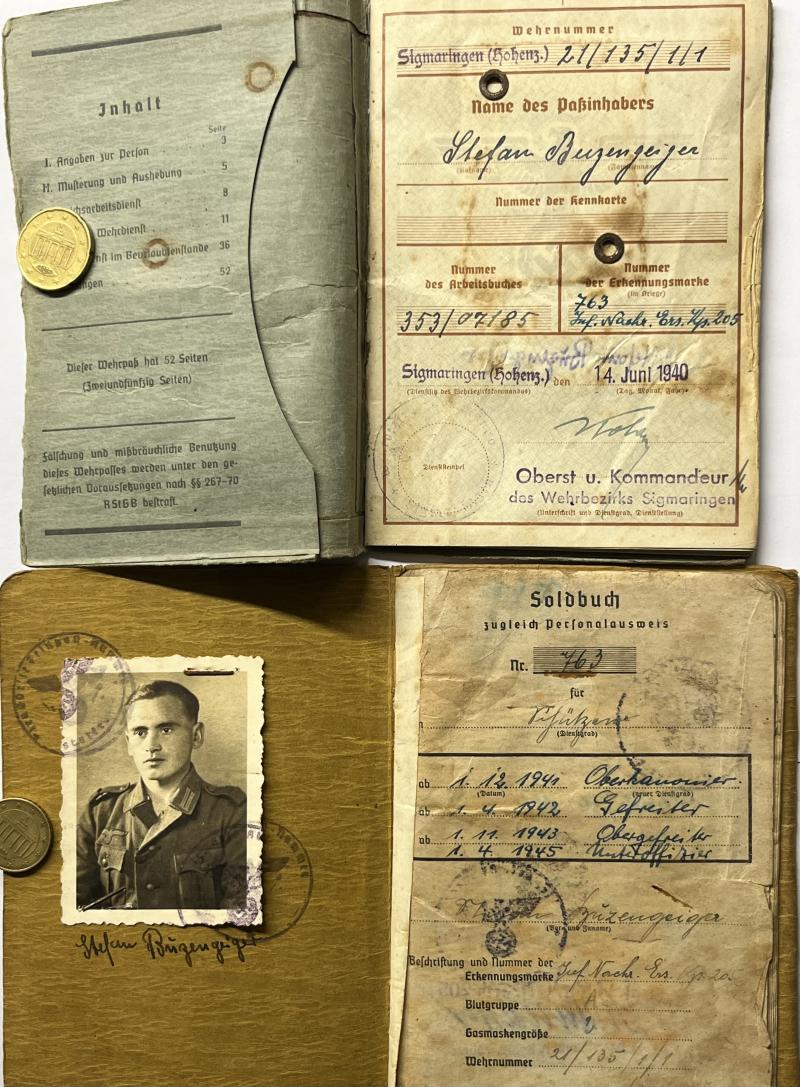 Inhalt
Seite
I. Angaben zur Person 3
II. Musterung und Aushebung 5
chsarbeitsdienst 8
Wehrdienst 11
nst im Beurlaubtenstande 36
ngen 52
Dieser Wehrpaß hat 52 Seiten
(Zweiundfünfzig Seiten)
Fälschung und mißbräuchliche Benutzung
dieses Wehrpasses werden unter den ge-
setzlichen Voraussetzungen nach §§ 267-70
RStGB bestraft.
Wehrnummer
Sigmaringen (Hohenz.) 21/135/1/1
Name des Paßinhabers
Stefan Buzengeiger
(Rufname) (Familienname)
Nummer der Kennkarte
Nummer
des Arbeitsbuches
353/07185
Nummer
der Erkennungsmarke
(im Kriege)
763
Inf. Nachr. Ers. Kp. 205
Sigmaringen (Hohenz.) den 14. Juni 1940
(Dienstsitz des Wehrbezirkskommandos) (Tag, Monat, Jahr)
Dienststempel
Oberst u. Kommandeur
des Wehrbezirks Sigmaringen
(Unterschrift und Dienstgrad, Dienststellung)
Soldbuch
zugleich Personalausweis
Nr. 763
für
Schützen
(Dienstgrad)
ab 1. 12. 1941 Oberkanonier.
(Datum) (neuer Dienstgrad)
ab 1. 4. 1942 Gefreiter
ab 1. 11. 1943 Obergefreiter
1. 4. 1945 Unteroffizier
Buzengeiger
(Vor- und Zuname)
Stefan Buzengeiger
Beschriftung und Nummer der
Erkennungsmarke Inf. Nachr. Ers. Kp. 20
Blutgruppe A
Gasmaskengröße 2
Wehrnummer 21/135/1/1